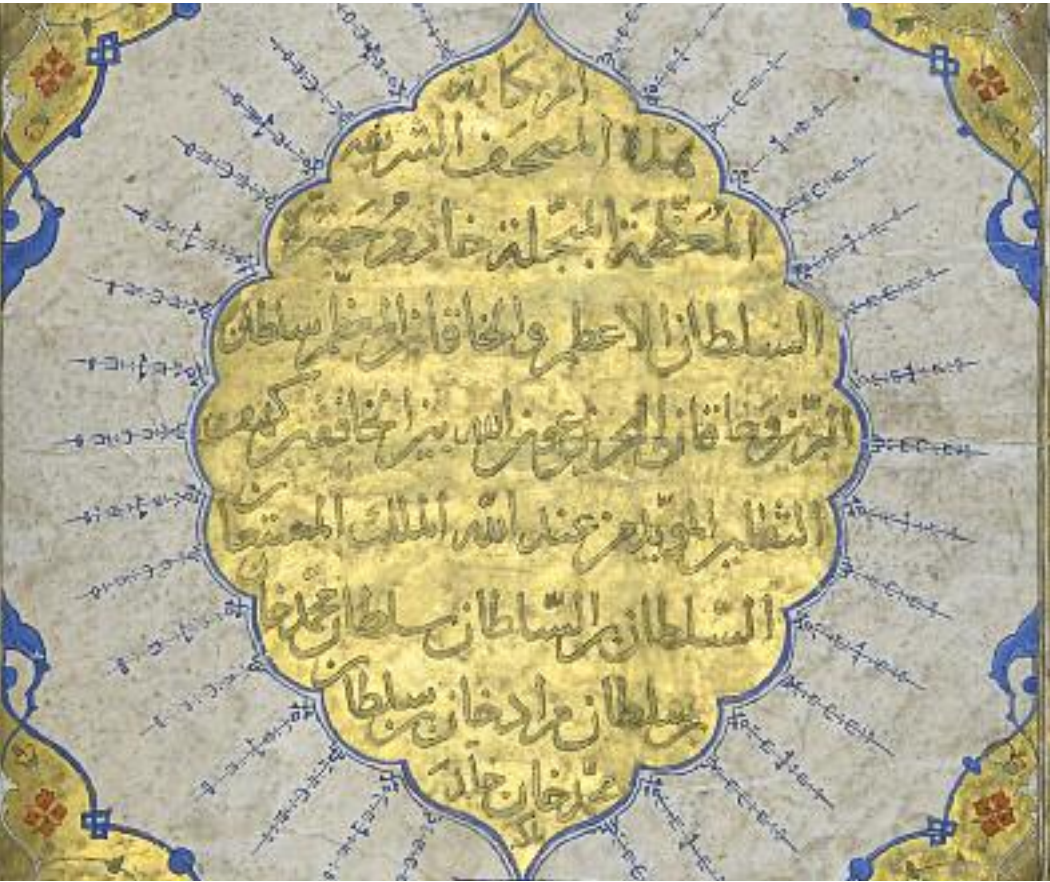 أمر بكتابة
هذه المصحف الشريفة
المُعَظّمَة المبجّلة حَضرَة
السلطان الاعظم والخاقان المعظم سلطان
البرّين وخاقان البحرين عون الله بين الخافقين كهف
الثقلين المؤيد من عند الله الملك المستعان
السّلطان بن السّلطان سلطان محمّد خان
بن سلطان مراد خان بن سلطان
محمد خان خلد